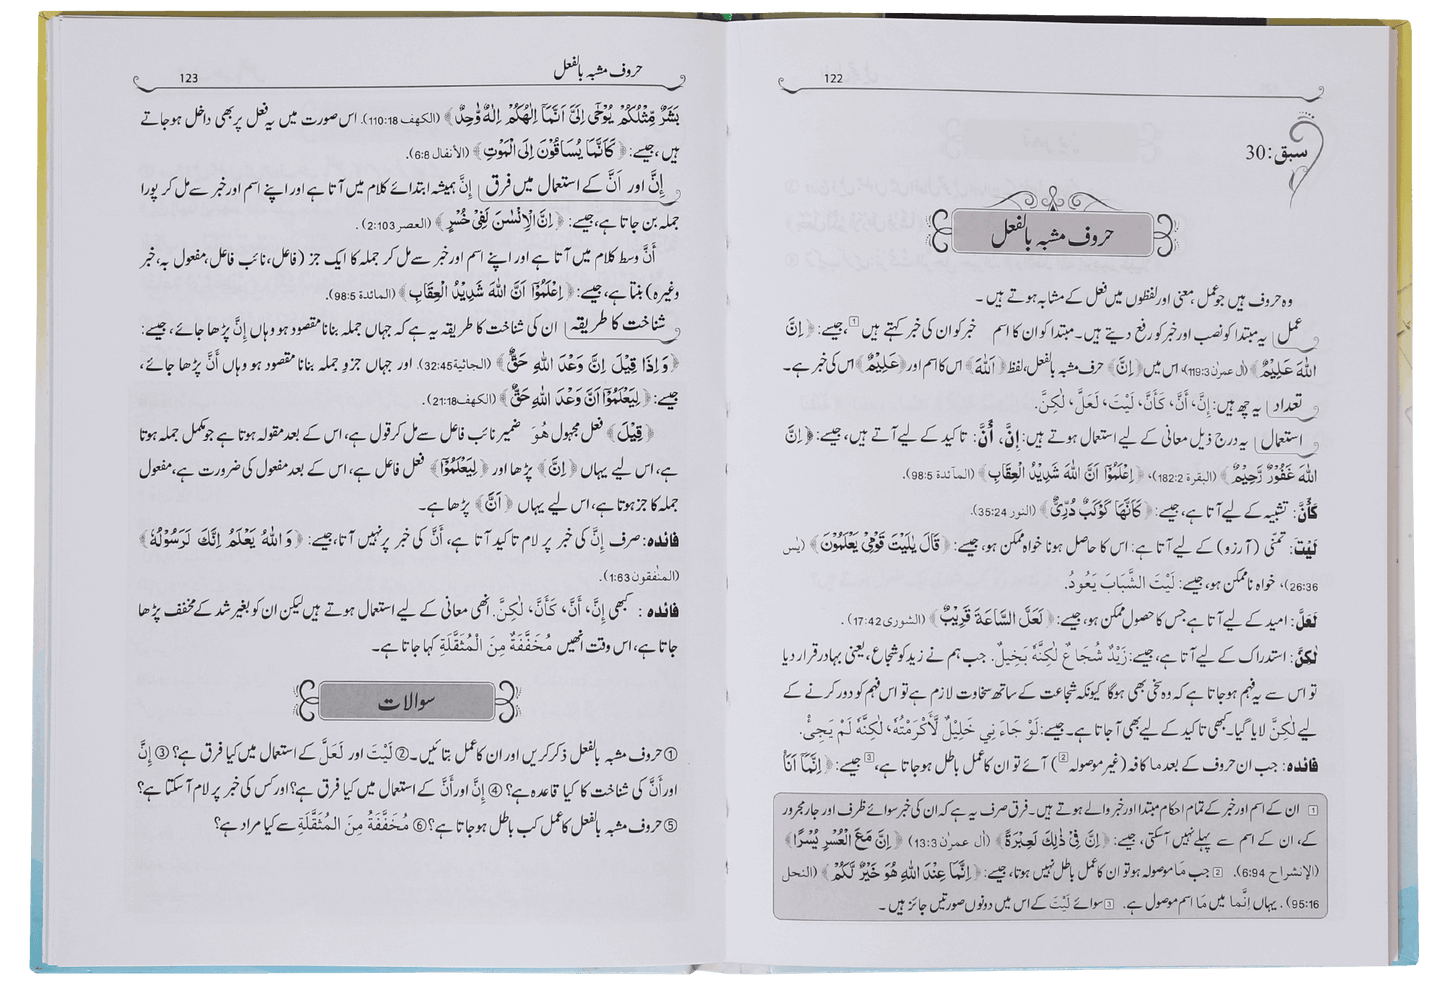 122
سبق:30
حروف مشبہ بالفعل
وہ حروف ہیں جو عمل، معنی اور لفظوں میں فعل کے مشابہ ہوتے ہیں۔
عمل یہ مبتدا کو نصب اور خبر کو رفع دیتے ہیں۔ مبتدا کو ان کا اسم خبر کو ان کی خبر کہتے ہیں 1، جیسے: ﴿اِنَّ
اللهَ عَلِيْمٌ﴾ (آل عمرٰن 119:3)، اس میں ﴿اِنَّ﴾ حرف مشبہ بالفعل، لفظ ﴿اَللهَ﴾ اس کا اسم اور ﴿عَلِيْمٌ﴾ اس کی خبر ہے۔
تعداد یہ چھ ہیں: إِنَّ، أَنَّ، كَأَنَّ، لَيْتَ، لَعَلَّ، لٰكِنَّ.
استعمال یہ درج ذیل معانی کے لیے استعمال ہوتے ہیں: إِنَّ، أَنَّ: تاکید کے لیے آتے ہیں، جیسے: ﴿اِنَّ
اللهَ غَفُوْرٌ رَّحِيْمٌ﴾ (البقرة 182:2)، ﴿اِعْلَمُوْٓا اَنَّ اللهَ شَدِيْدُ الْعِقَابِ﴾ (المآئدة 98:5).
كَأَنَّ: تشبیہ کے لیے آتا ہے، جیسے: ﴿كَاَنَّهَا كَوْكَبٌ دُرِّيٌّ﴾ (النور 35:24).
لَيْتَ: تمنّی (آرزو) کے لیے آتا ہے: اس کا حاصل ہونا خواہ ممکن ہو، جیسے: ﴿قَالَ يٰلَيْتَ قَوْمِيْ يَعْلَمُوْنَ﴾ (يٰس
26:36)، خواہ ناممکن ہو، جیسے: لَيْتَ الشَّبَابَ يَعُودُ.
لَعَلَّ: امید کے لیے آتا ہے جس کا حصول ممکن ہو، جیسے: ﴿لَعَلَّ السَّاعَةَ قَرِيْبٌ﴾ (الشورى 17:42).
لٰكِنَّ: استدراک کے لیے آتا ہے، جیسے: زَيْدٌ شُجَاعٌ لٰكِنَّهُ بَخِيلٌ. جب ہم نے زید کو شجاع، یعنی بہادر قرار دیا
تو اس سے یہ فہم ہو جاتا ہے کہ وہ سخی بھی ہوگا کیونکہ شجاعت کے ساتھ سخاوت لازم ہے تو اس فہم کو دور کرنے کے
لیے لٰكِنَّ لایا گیا۔ کبھی تاکید کے لیے بھی آ جاتا ہے۔ جیسے: لَوْ جَاءَ نِي خَلِيْلٌ لَّأَكْرَمْتُهُ، لٰكِنَّهُ لَمْ يَجِئْ.
فائدہ: جب ان حروف کے بعد ما کافہ (غیر موصولہ 2) آئے تو ان کا عمل باطل ہو جاتا ہے 3، جیسے: ﴿اِنَّمَآ اَنَا
1 ان کے اسم اور خبر کے تمام احکام مبتدا اور خبر والے ہوتے ہیں۔ فرق صرف یہ ہے کہ ان کی خبر سوائے ظرف اور جار مجرور
کے، ان کے اسم سے پہلے نہیں آسکتی، جیسے: ﴿اِنَّ فِيْ ذٰلِكَ لَعِبْرَةً﴾ (آل عمرٰن 13:3) ﴿اِنَّ مَعَ الْعُسْرِ يُسْرًا﴾
(الإنشراح 6:94). 2 جب مَا موصولہ ہو تو ان کا عمل باطل نہیں ہوتا، جیسے: ﴿اِنَّمَا عِنْدَ اللهِ هُوَ خَيْرٌ لَّكُمْ﴾ (النحل
95:16). یہاں إِنَّمَا میں مَا اسم موصول ہے. 3 سوائے لَيْتَ کے اس میں دونوں صورتیں جائز ہیں۔
حروف مشبہ بالفعل 123
بَشَرٌ مِّثْلُكُمْ يُوْحٰٓى اِلَيَّ اَنَّمَآ اِلٰهُكُمْ اِلٰهٌ وَّاحِدٌ﴾ (الكهف 110:18). اس صورت میں یہ فعل پر بھی داخل ہو جاتے
ہیں، جیسے: ﴿كَاَنَّمَا يُسَاقُوْنَ اِلَى الْمَوْتِ﴾ (الأنفال 6:8).
إِنَّ اور أَنَّ کے استعمال میں فرق إِنَّ ہمیشہ ابتدائے کلام میں آتا ہے اور اپنے اسم اور خبر سے مل کر پورا
جملہ بن جاتا ہے، جیسے: ﴿اِنَّ الْاِنْسٰنَ لَفِيْ خُسْرٍ﴾ (العصر 2:103).
أَنَّ وسط کلام میں آتا ہے اور اپنے اسم اور خبر سے مل کر جملہ کا ایک جز (فاعل، نائب فاعل، مفعول بہ، خبر
وغیرہ) بنتا ہے، جیسے: ﴿اِعْلَمُوْٓا اَنَّ اللهَ شَدِيْدُ الْعِقَابِ﴾ (المائدة 98:5).
شناخت کا طریقہ ان کی شناخت کا طریقہ یہ ہے کہ جہاں جملہ بنانا مقصود ہو وہاں إِنَّ پڑھا جائے، جیسے:
﴿وَاِذَا قِيْلَ اِنَّ وَعْدَ اللهِ حَقٌّ﴾ (الجاثية 32:45). اور جہاں جزو جملہ بنانا مقصود ہو وہاں أَنَّ پڑھا جائے،
جیسے: ﴿لِيَعْلَمُوْٓا اَنَّ وَعْدَ اللهِ حَقٌّ﴾ (الكهف 21:18).
﴿قِيْلَ﴾ فعل مجہول هُوَ ضمیر نائب فاعل سے مل کر قول ہے، اس کے بعد مقولہ ہوتا ہے جو مکمل جملہ ہوتا
ہے، اس لیے یہاں ﴿اِنَّ﴾ پڑھا اور ﴿لِيَعْلَمُوْٓا﴾ فعل فاعل ہے، اس کے بعد مفعول کی ضرورت ہے، مفعول
جملہ کا جز ہوتا ہے، اس لیے یہاں ﴿اَنَّ﴾ پڑھا ہے۔
فائدہ: صرف إِنَّ کی خبر پر لام تاکید آتا ہے، أَنَّ کی خبر پر نہیں آتا، جیسے: ﴿وَاللهُ يَعْلَمُ اِنَّكَ لَرَسُوْلُهٗ﴾
(المنٰفقون 1:63).
فائدہ: کبھی إِنَّ، أَنَّ، كَأَنَّ، لٰكِنَّ. انھی معانی کے لیے استعمال ہوتے ہیں لیکن ان کو بغیر شد کے مخفف پڑھا
جاتا ہے، اس وقت انھیں مُخَفَّفَةٌ مِنَ الْمُثَقَّلَةِ کہا جاتا ہے۔
سوالات
① حروف مشبہ بالفعل ذکر کریں اور ان کا عمل بتائیں۔ ② لَيْتَ اور لَعَلَّ کے استعمال میں کیا فرق ہے؟ ③ إِنَّ
اور أَنَّ کی شناخت کا کیا قاعدہ ہے؟ ④ إِنَّ اور أَنَّ کے استعمال میں کیا فرق ہے؟ اور کس کی خبر پر لام آسکتا ہے؟
⑤ حروف مشبہ بالفعل کا عمل کب باطل ہو جاتا ہے؟ ⑥ مُخَفَّفَةٌ مِنَ الْمُثَقَّلَةِ سے کیا مراد ہے؟